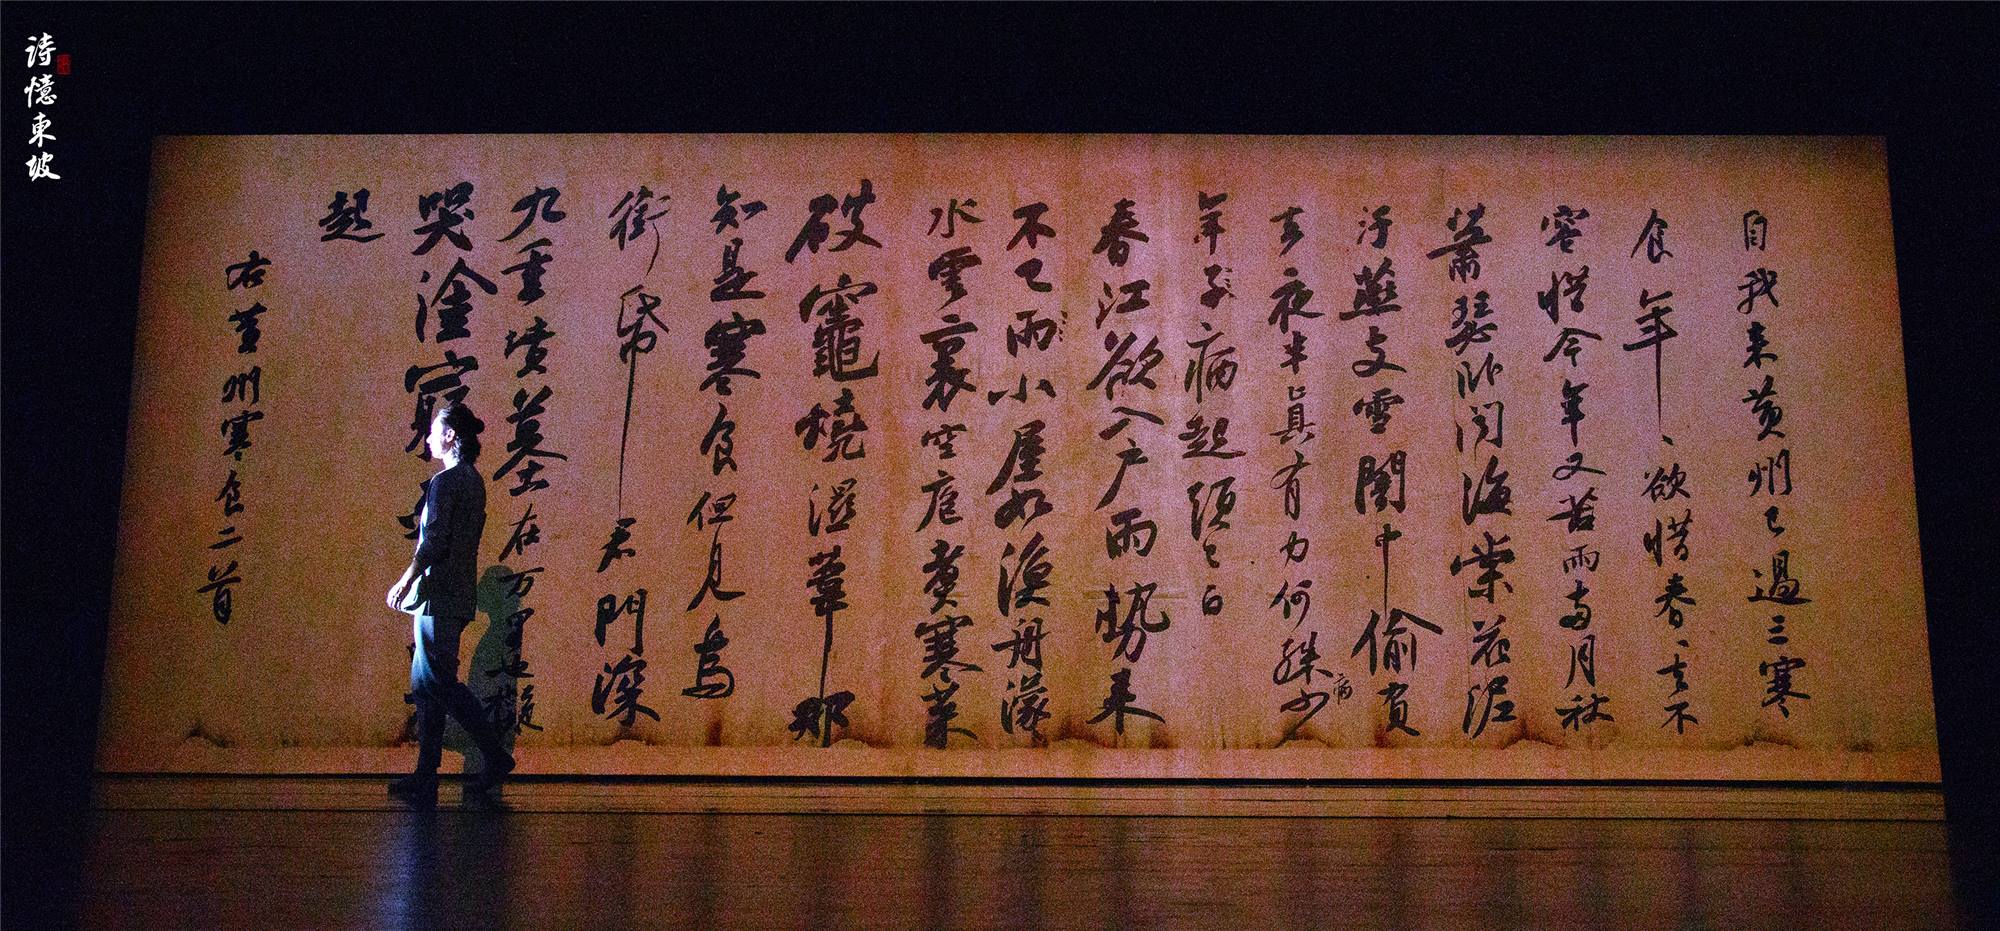 诗憶東坡
自我来黄州已過三寒
食年、欲惜春、去不
容惜今年又苦雨兩月秋
蕭瑟卧聞海棠花泥
汙燕支雪闇中偷負
去夜半真有力何殊少
病
年子病起頭已白
春江欲入户雨勢来
不已雨小屋如漁舟濛
水雲裏空庖煮寒菜
破竈燒濕葦那
知是寒食但見烏
銜帋君門深
九重墳墓在万里也擬
哭塗窮
起
右黄州寒食二首